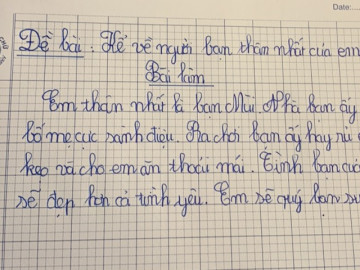 Date:
Đề bài: Kể về người bạn thân nhất của em
Bài làm
Em thân nhất là bạn Mùi. Nhà bạn ấy
bố mẹ cực sành điệu. Ra chơi bạn ấy hay rủ
kẹo và cho em ăn thoải mái. Tình bạn của
sẽ đẹp hơn cả tình yêu. Em sẽ quý bạn